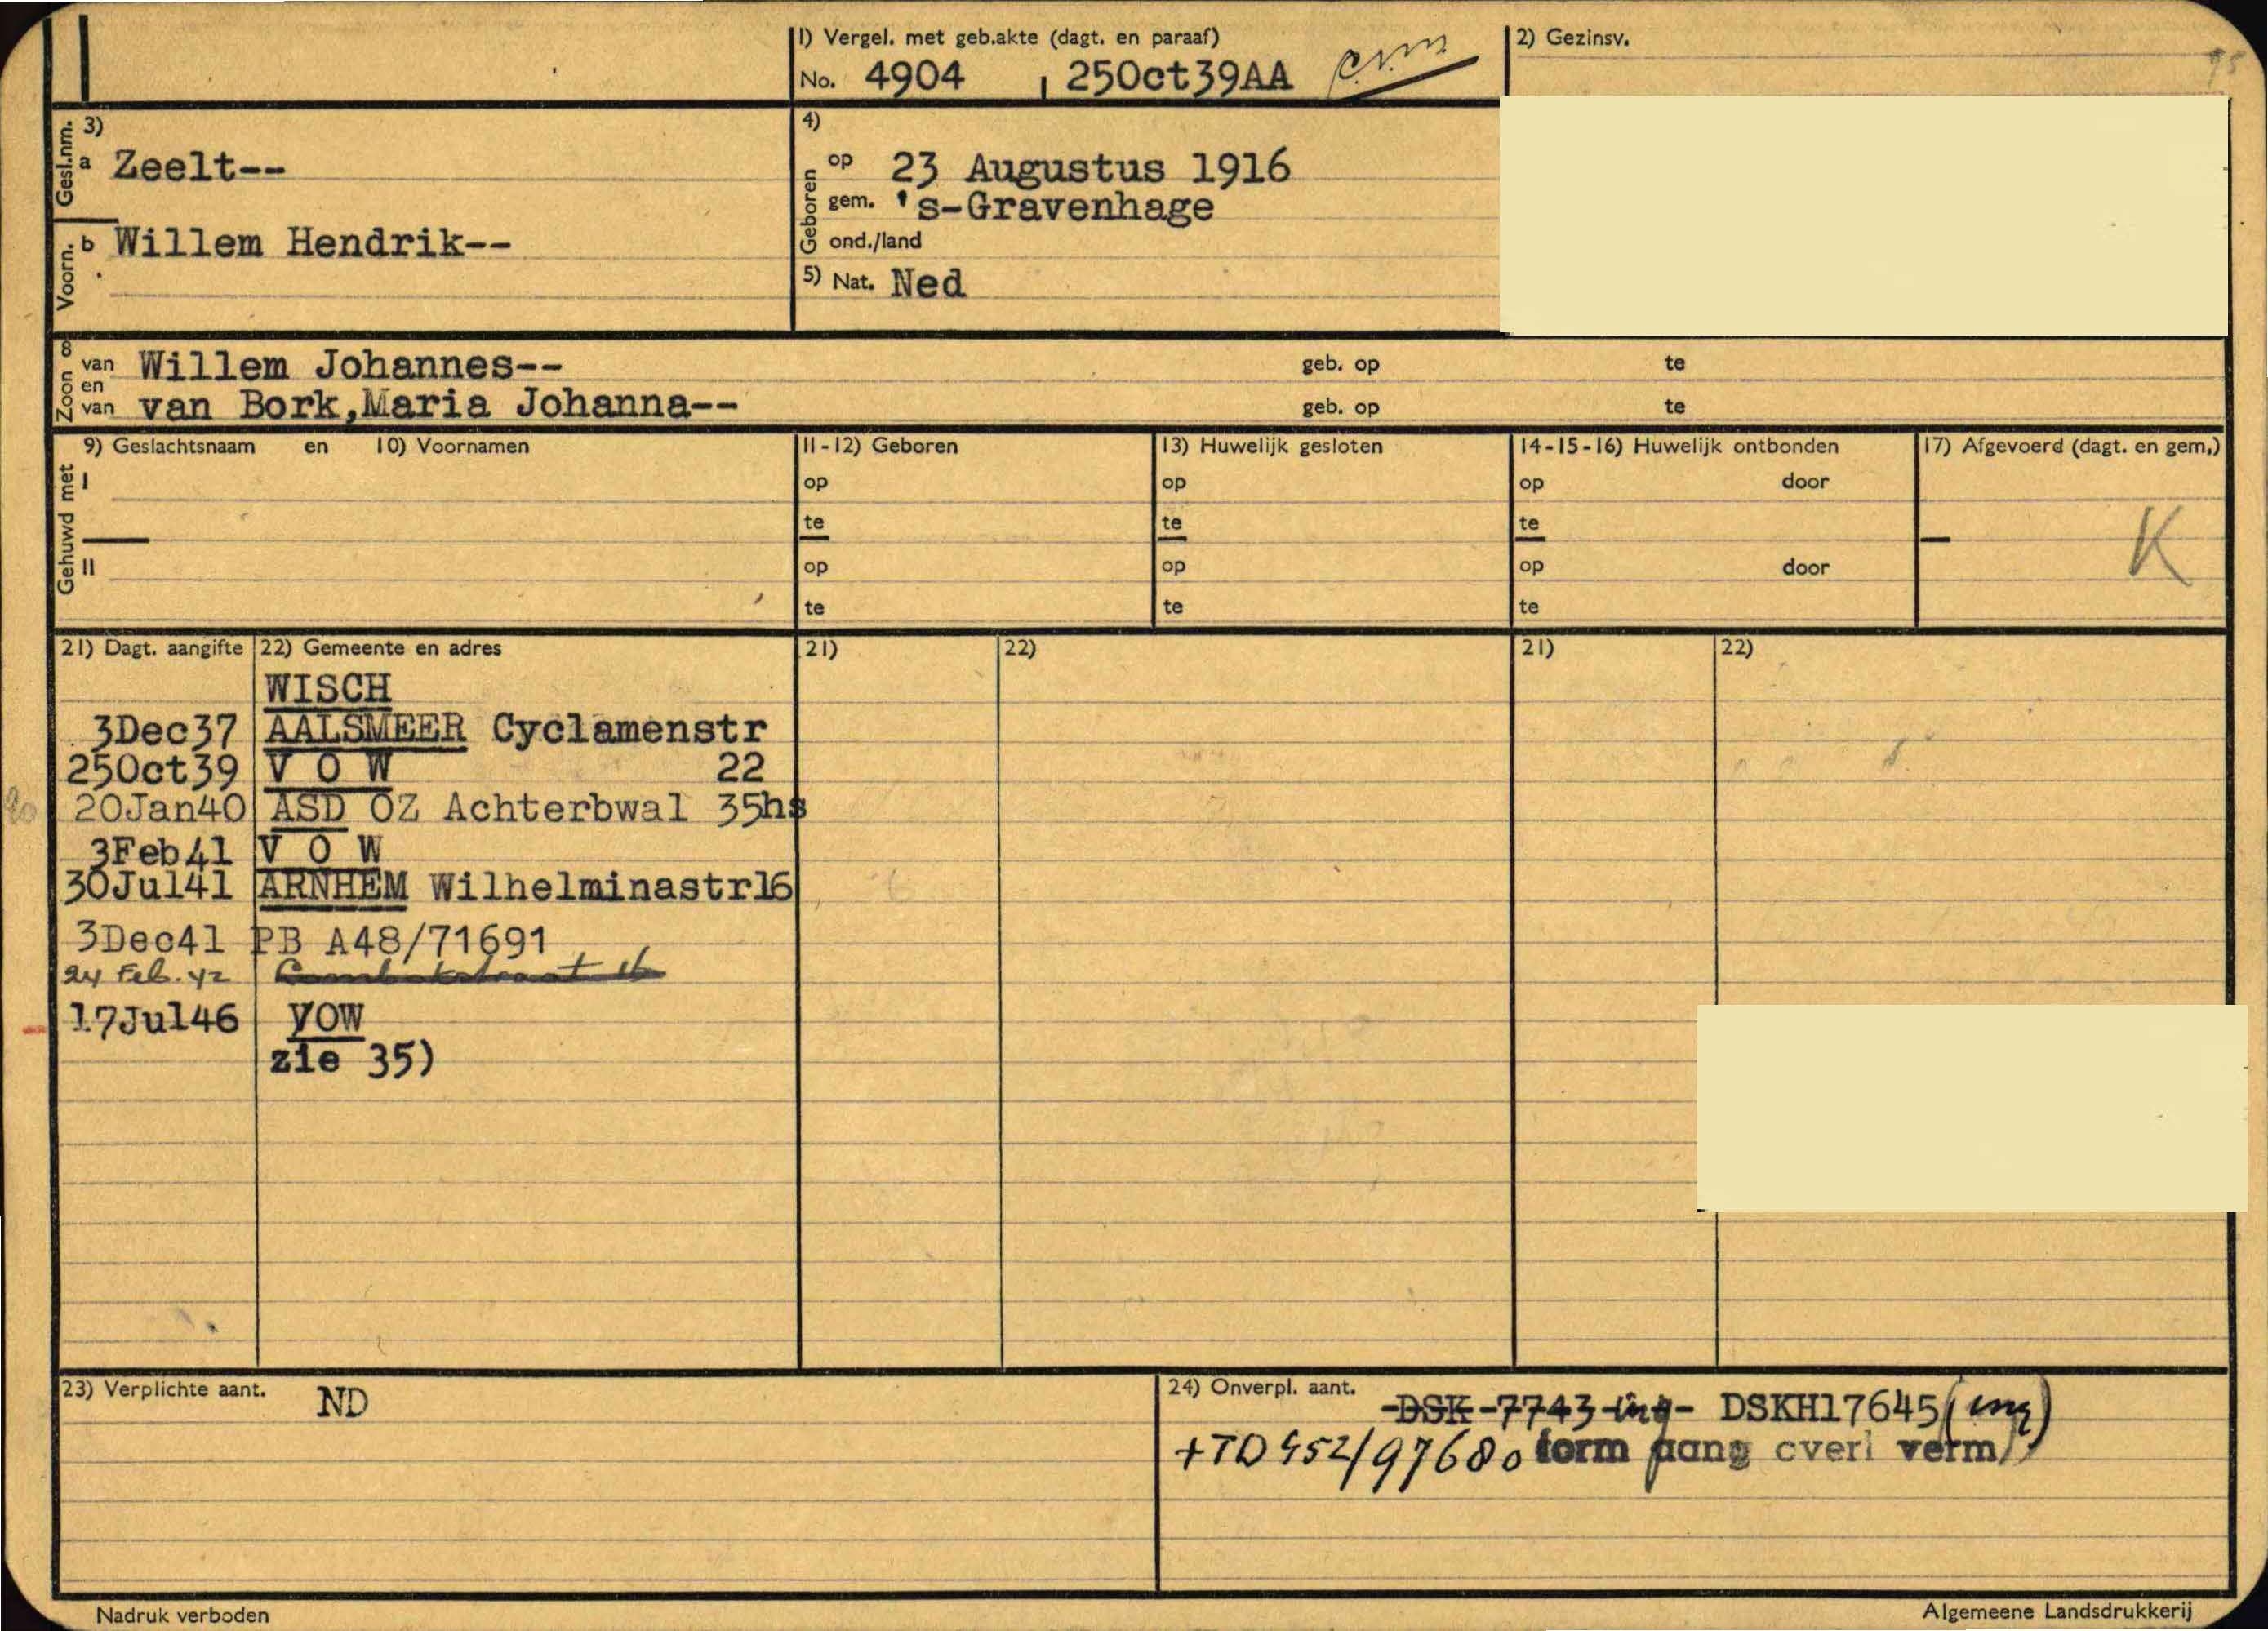 1) Vergel. met geb.akte (dagt. en paraaf)
No. 4904 , 25Oct39AA
2) Gezinsv.
Gesl.nm. 3)
a Zeelt--
Voorn. b Willem Hendrik--
4)
Geboren op 23 Augustus 1916
gem. 's-Gravenhage
ond./land
5) Nat. Ned
8 Zoon van Willem Johannes-- geb. op te
en
van van Bork,Maria Johanna-- geb. op te
9) Geslachtsnaam en 10) Voornamen 11-12) Geboren 13) Huwelijk gesloten 14-15-16) Huwelijk ontbonden 17) Afgevoerd (dagt. en gem.)
Gehuwd met I op op op door
te te te K
II op op op door
te te te
21) Dagt. aangifte 22) Gemeente en adres 21) 22) 21) 22)
WISCH
3Dec37 AALSMEER Cyclamenstr
25Oct39 V O W 22
20Jan40 ASD OZ Achterbwal 35hs
3Feb41 V O W
30Jul41 ARNHEM Wilhelminastr16
3Dec41 PB A48/71691
24 Feb. 42 16
17Jul46 VOW
zie 35)
23) Verplichte aant. ND
24) Onverpl. aant. -DSK-7743-ing- DSKH17645(ing)
+TD 452/97680 form aang overl verm
Nadruk verboden Algemeene Landsdrukkerij